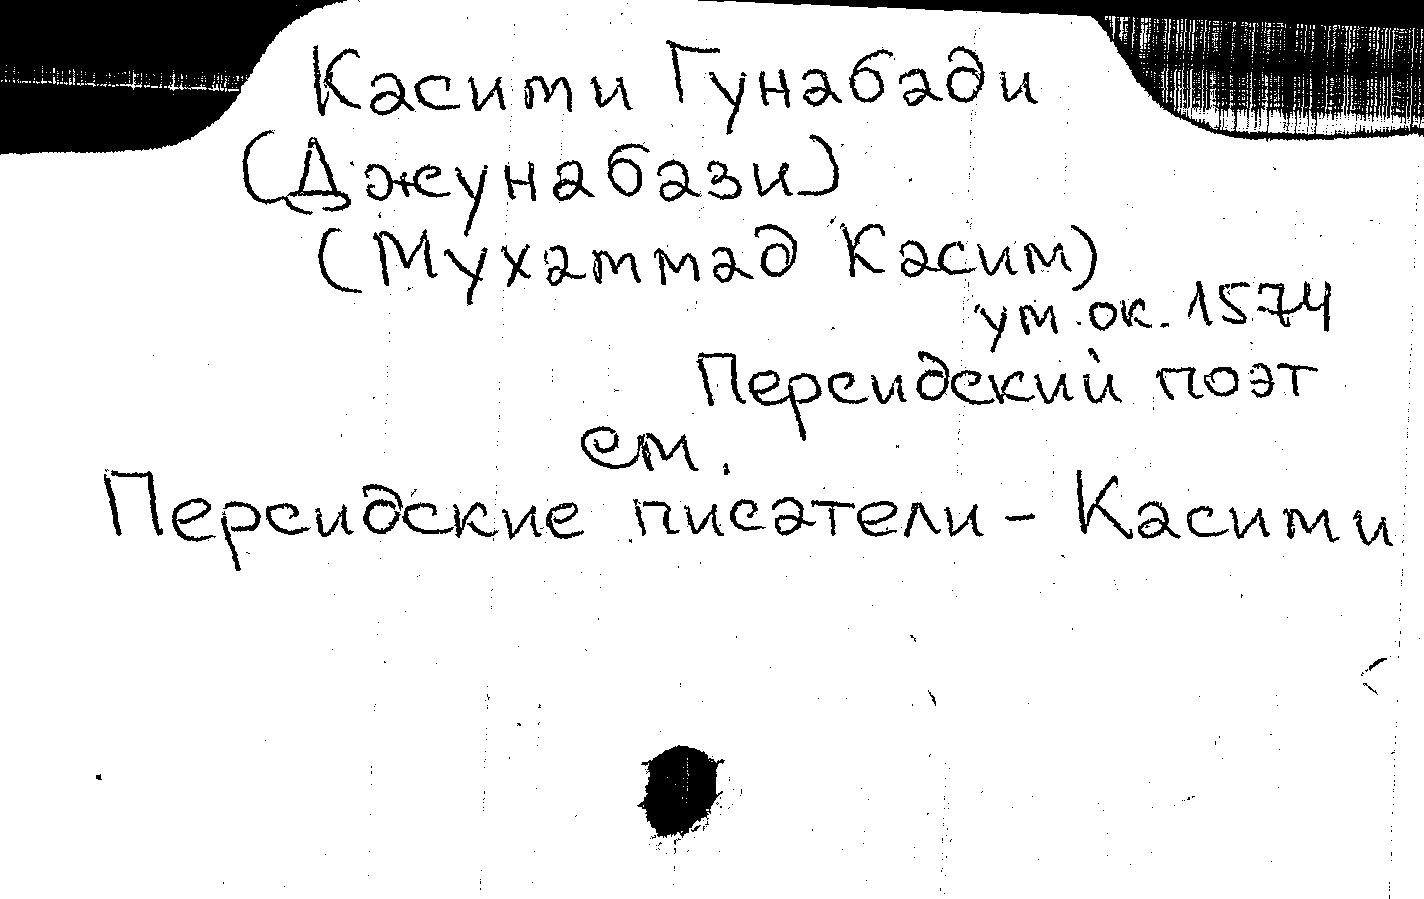 Касими Гунабади
(Джунабази)
(Мухаммад Касим)
ум. ок. 1574
Персидский поэт
см.
Персидские писатели - Касими